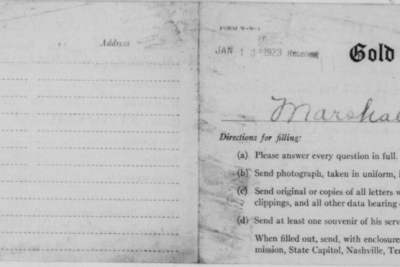 Address
FORM W-W-1
JAN 13 1923 Received
Gold
Marshal
Directions for filling:
(a) Please answer every question in full.
(b) Send photograph, taken in uniform, i
(c) Send original or copies of all letters w
clippings, and all other data bearing
(d) Send at least one souvenir of his serv
When filled out, send, with enclosure
mission, State Capitol, Nashville, Ten